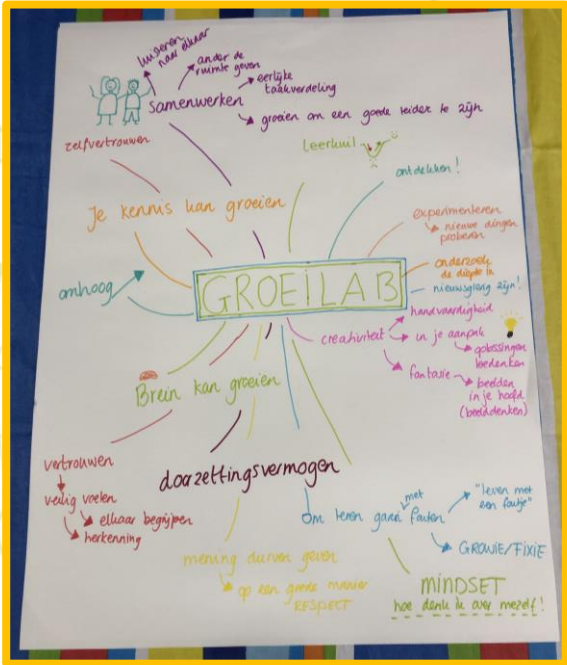 luisteren
naar elkaar
ander de
ruimte geven
eerlijke
taakverdeling
samenwerken
groeien om een goede leider te zijn
zelfvertrouwen
leerkuil
ontdekken!
Je kennis kan groeien
experimenteren
nieuwe dingen
proberen
onderzoek
de diepte in
nieuwsgierig zijn!
omhoog
GROEILAB
handvaardigheid
creativiteit
in je aanpak
oplossingen
bedenken
fantasie
beelden
in je hoofd
(beelddenken)
Brein kan groeien
vertrouwen
veilig voelen
elkaar begrijpen
herkenning
doorzettingsvermogen
met
om leren gaan fouten
"leven met
een foutje"
GROWIE/FIXIE
mening durven geven
op een goede manier
RESPECT
MINDSET
hoe denk ik over mezelf!